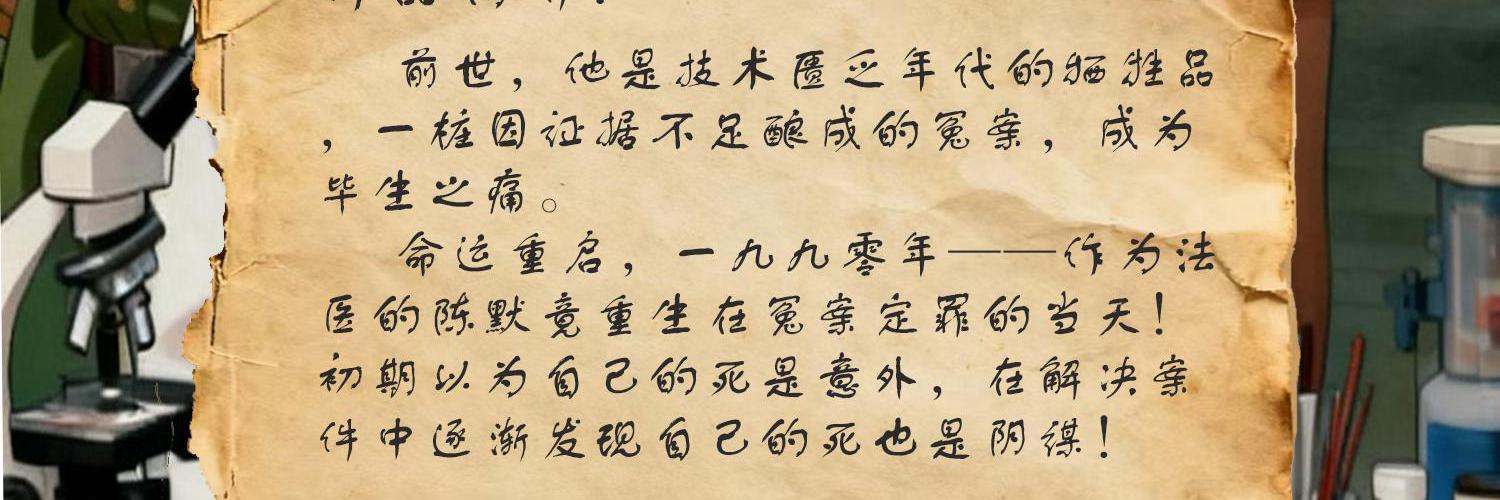 前世，他是技术匮乏年代的牺牲品
，一桩因证据不足酿成的冤案，成为
毕生之痛。
命运重启，一九九零年——作为法
医的陈默竟重生在冤案定罪的当天！
初期以为自己的死是意外，在解决案
件中逐渐发现自己的死也是阴谋！